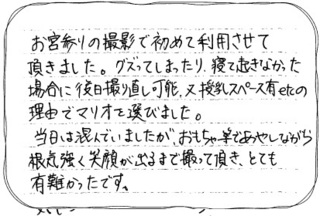 お宮参りの撮影で初めて利用させて
頂きました。グズってしまったり、寝て起きなかった
場合に後日撮り直し可能、又授乳スペース有etcの
理由でマリオを選びました。
当日は混んでいましたが、おもちゃ等であやしながら
根気強く笑顔が出るまで撮って頂き、とても
有難かったです。